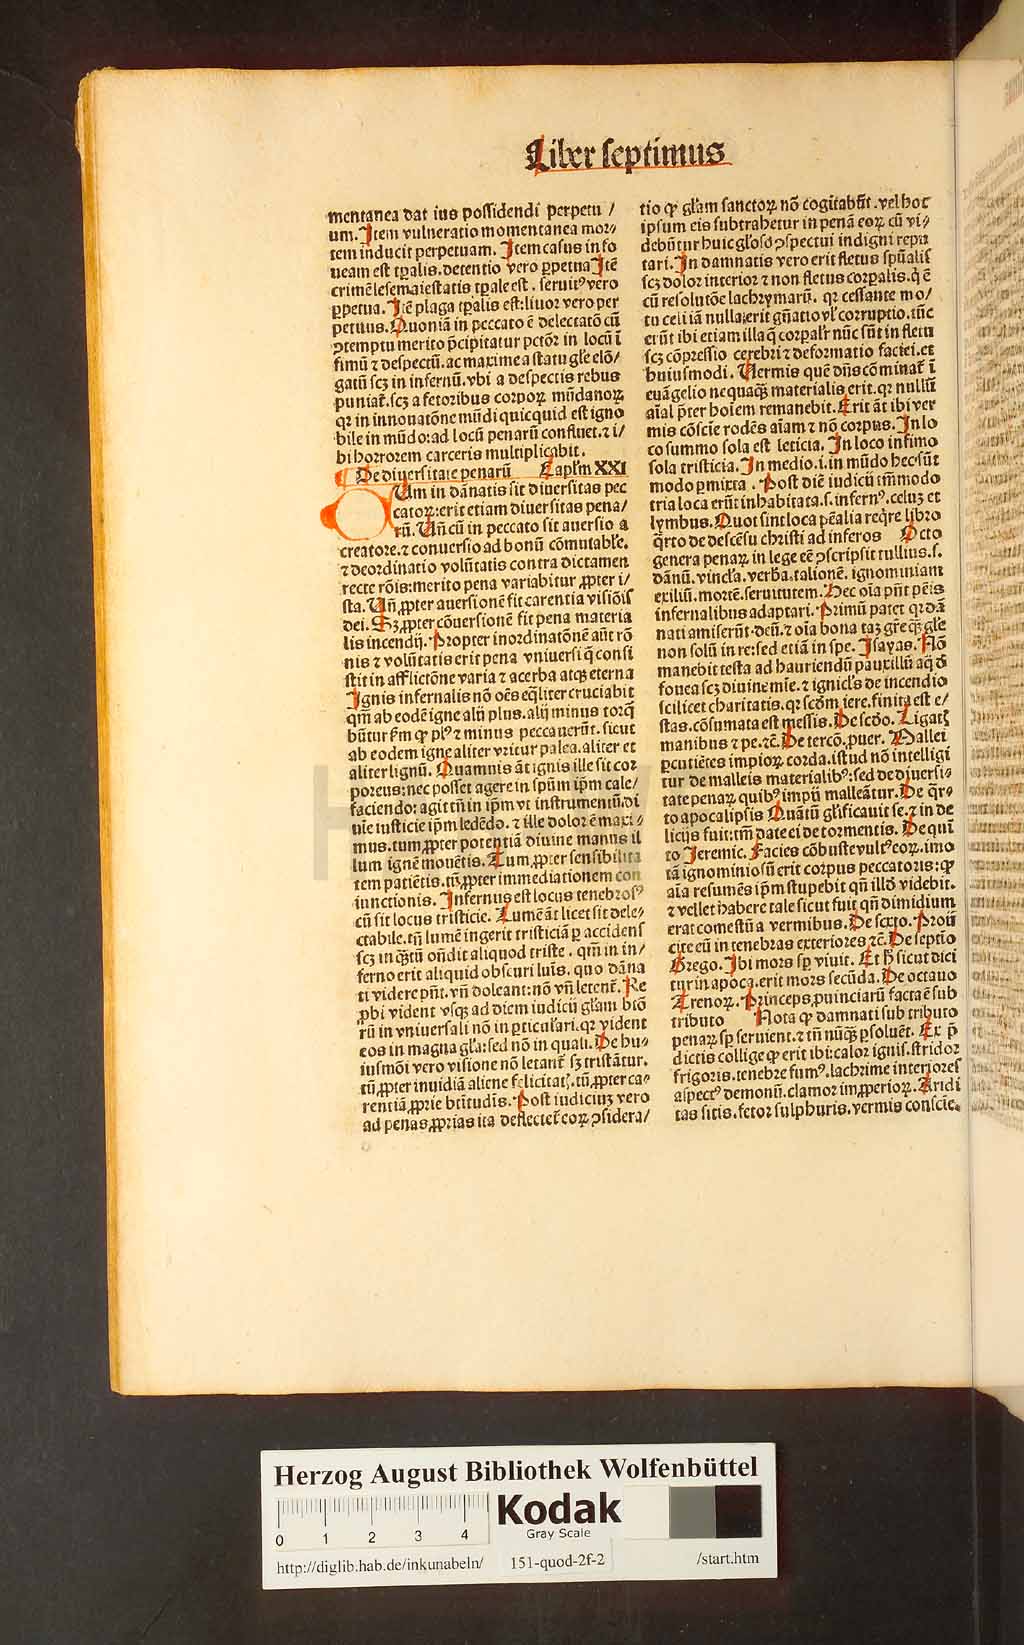 Liber septimus
mentanea dat ius possidendi perpetu /
um. Item vulneratio momentanea mor⸗
tem inducit perpetuam. Item casus in fo
ueam est tꝑalis. detentio vero ꝑpetua Itē
crimē lesemaiestatis tꝑale est. seruitꝰ vero
ꝑpetua. Itē plaga tꝑalis est: liuor vero per
petuus. Quoniā in peccato ē delectatō cū
ꝯtemptu merito p̄cipitatur pctōr in locū ī
fimū ⁊ despectū. ac maxime a statu gl̄e elō/
gatū scꝫ in infernū. vbi a despectis rebus
puniat̄. scꝫ a fetoribus corpoꝝ mūdanoꝝ
qꝛ in innouatōne mūdi quicquid est igno
bile in mūdo: ad locū penarū confluet. ⁊ i/
bi horrorem carceris multiplicabit.
De diuersitate penarū Capl'm XXI
Um in dānatis sit diuersitas pec
catoꝝ: erit etiam diuersitas pena/
rū. Uñ cū in peccato sit auersio a
creatore. ⁊ conuersio ad bonū cōmutabl'e.
⁊ deordinatio volūtatis contra dictamen
recte rōis: merito pena variabitur ꝓpter i/
sta. Uñ ꝓpter auersionē fit carentia visiōis
dei. Sꝫ ꝓpter cōuersionē fit pena materia
lis incendij. Propter inordinatōnē aūt rō
nis ⁊ volūtatis erit pena vniuersi q̄ consi
stit in afflictōne varia ⁊ acerba atqꝫ eterna
Ignis infernalis nō oēs eq̄liter cruciabit
qm̄ ab eodē igne alij plus. alij minus torq̄
būtur fm̄ ꝙ plꝰ ⁊ minus peccauerūt. sicut
ab eodem igne aliter vritur palea. aliter et
aliter lignū. Quamuis āt ignis ille sit cor
poreus: nec posset agere in spūm ip̄m cale/
faciendo: agit tn̄ in ip̄m vt instrumentū. di
uie iusticie ip̄m ledēdo. ⁊ ille dolor ē maxi⸗
mus. tum ꝓpter potentiā diuine manus il
lum ignē mouētis. Tum ꝓpter sensibilita
tem patiētis. tū ꝓpter immediationem con
iunctionis. Infernus est locus tenebrosꝰ
cū sit locus tristicie. Lumē āt licet sit dele⸗
ctabile. tn̄ lumē ingerit tristiciā ꝑ accidens
scꝫ in q̄ꝫtū on̄dit aliquod triste. qm̄ in in/
ferno erit aliquid obscuri luīs. quo dāna
ti videre pn̄t. vn̄ doleant: nō vn̄ letent̄. Re
ꝓbi vident vsqꝫ ad diem iudicij gl̄am btō
rū in vniuersali nō in ꝑticulari. qꝛ vident
eos in magna gl̄a: sed nō in quali. De hu⸗
iusmōi vero visione nō letant̄ sꝫ tristātur.
tū ꝓpter inuidiā aliene felicitat̄. tū ꝓpter ca⸗
rentiā ꝓprie btitudis. Post iudiciuꝫ vero
ad penas ꝓprias ita deflectet̄ eoꝝ ꝯsidera/
tio ꝙ gl̄am sanctoꝝ nō cogitabūt. vel hoc
ipsum eis subtrahetur in penā eoꝝ cū vi⸗
debūtur huic gl̄oso ꝯspectui indigni repu
tari. In damnatis vero erit fletus spūalis
scꝫ dolor interior ⁊ non fletus corꝑalis. q̄ ē
cū resolutōe lachrymarū. qꝛ cessante mo/
tu celi iā nulla erit gn̄atio vl' corruptio. tūc
erūt ibi etiam illa q̄ corꝑal'r nūc sūt in fletu
scꝫ cōpressio cerebri ⁊ deformatio faciei. et
huiusmodi. Uermis quē dn̄s cōminat̄ ī
euāgelio nequaqꝫ materialis erit. qꝛ nullū
aīal p̄ter hoīem remanebit. Erit āt ibi ver
mis cōscīe rodēs aīam ⁊ nō corpus. In lo
co summo sola est leticia. In loco infimo
sola tristicia. In medio. i. in mūdo hec sūt
modo ꝑmixta. Post diē iudicij īmodo
tria loca erūt inhabitata. s. infernꝰ. celuꝫ et
lymbus. Quot sint loca pēalia req̄re libro
q̄rto de descēsu christi ad inferos Octo
genera penaꝝ in lege eē ꝯscripsit tullius. s.
dānū. vincl'a. verb̄a. talionē. ignominiam
exiliū. mortē. seruitutem. Hec oīa pn̄t pēis
infernalibus adaptari. Primū patet qꝛ dā
nati amiserūt deū. ⁊ oīa bona taꝫ gr̄e qꝫ gl̄e
non solū in re: sed etiā in spe. Isayas. Nō
manebit testa ad hauriendū pauxillū aq̄ d̄
fouea scꝫ diuine mīe. ⁊ ignicl's de incendio
scilicet charitatis. qꝛ scd̄m iere. finita est e/
stas. cōsumata est messis. De scd̄o. Ligatꝭ
manibus ⁊ pe. ⁊c̄. De tercō. ꝓuer. Mallei
ꝑcutiētes impioꝝ corda. istud nō intelligi
tur de malleis materialibꝰ: sed de diuersi⸗
tate penaꝝ quibꝰ impij malleātur. De q̄r⸗
to apocalipsis Quātū gl̄ificauit se. ⁊ in de
licijs fuit: tm̄ date ei de tormentis. De quī
to Jeremie. Facies cōbuste vultꝰ eoꝝ. imo
tā ignominiosū erit corpus peccatoris: ꝙ
aīa resumēs ip̄m stupebit qn̄ illd̄ videbit.
⁊ vellet habere tale sicut fuit qn̄ dimidium
erat comestū a vermibus. De sexto. Proij
cite eū in tenebras exteriores ⁊c̄. De septīo
Grego. Ibi mors sp̄ viuit. Et h̄ sicut dici
tur in apoca. erit mors secūda. De octauo
Trenoꝝ. Princeps ꝓuinciarū facta ē sub
tributo Nota ꝙ damnati sub tributo
penaꝝ sp̄ seruient. ⁊ tn̄ nūqꝫ ꝑsoluēt. Ex p̄
dictis collige ꝙ erit ibi: calor ignis. stridor
frigoris. tenebre fumꝰ. lachrime interiores
aspectꝰ demonū. clamor improperioꝝ. Aridi
tas sitis. fetor sulphuris. vermis conscīe.
Herzog August Bibliothek Wolfenbüttel
0 1 2 3 4
Kodak
Gray Scale
http://diglib.hab.de/inkunabeln/ 151-quod-2f-2 /start.htm